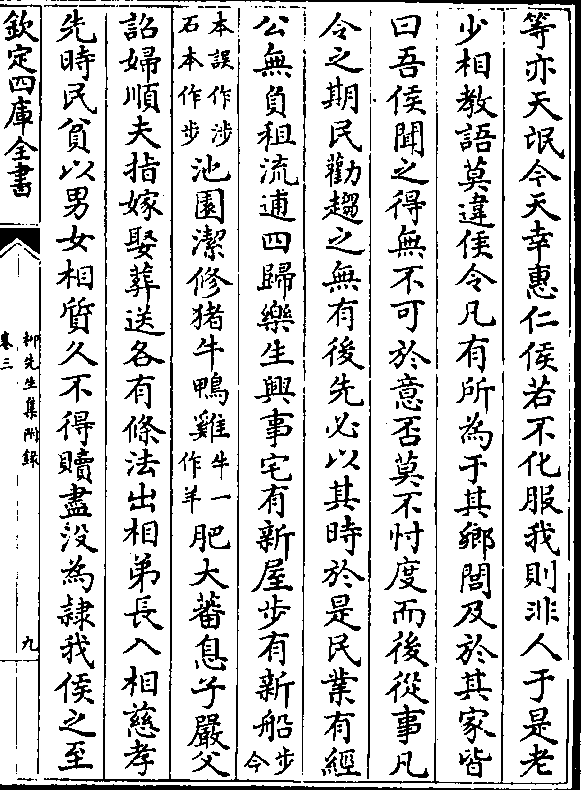 等亦天氓今天幸惠仁侯若不化服我則非人于是老
少相教語莫違侯令凡有所為于其鄉閭及於其家皆
曰吾侯聞之得無不可於意否莫不忖度而後從事凡
令之期民勸趨之無有後先必以其時於是民業有經
公無負租流逋四歸樂生興事宅有新屋步有新船步今
本誤作涉石本作步池園潔修猪牛鴨雞牛一作羊肥大蕃息子嚴父
詔婦順夫指嫁娶葬送各有條法出相弟長入相慈孝
先時民貧以男女相質久不得贖盡沒為隷我侯之至
欽定四庫全書
柳先生集附錄
卷三
九